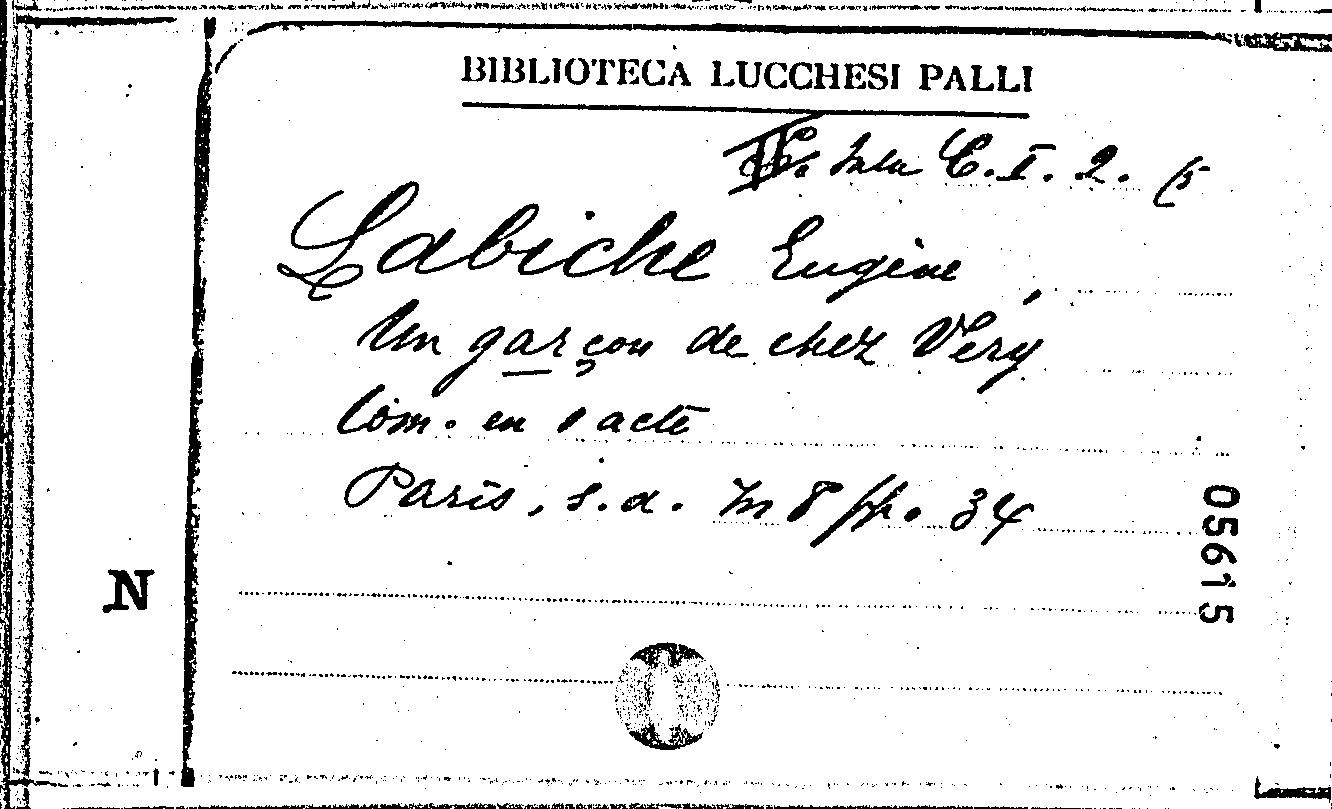 BIBLIOTECA LUCCHESI PALLI
Sala C.I.2. (5
Labiche Eugène,
Un garçon de chez Véry
Com. en 1 acte
Paris, s.d. In 8 pp. 34
05615
N